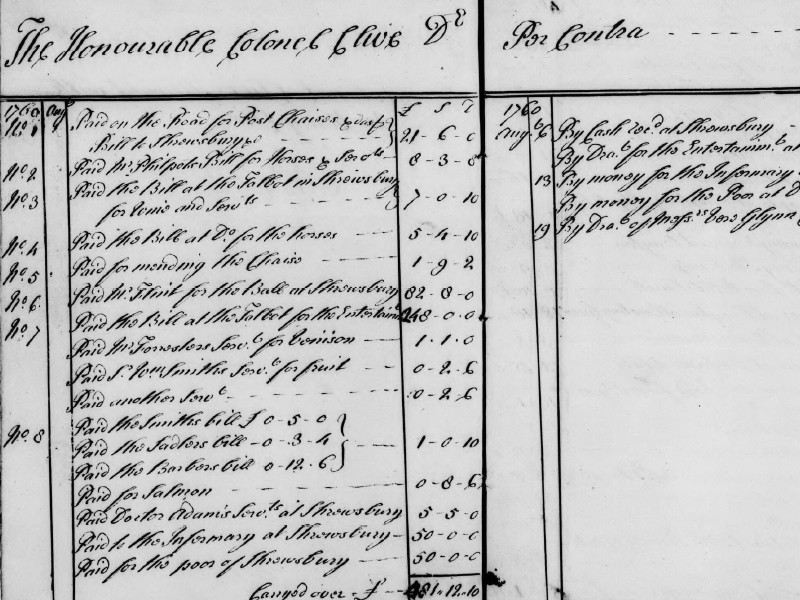 The Honourable Colonel Clive Dr
£ S D
1760 Augt
No. 1 Paid on the Road for Post Chaises &
Bill to Shrewsbury &c 21-6-0
No. 2 Paid Mr Philpots Bill for Horses & Servts 8-3-8
No. 3 Paid the Bill at the Talbot in Shrewsbury
for Wine and Servts 7-0-10
No. 4 Paid the Bill at Do for the horses 5-4-10
No. 5 Paid for mending the Chaise 1-9-2
No. 6 Paid Mr Flint for the Ball at Shrewsbury 82-8-0
No. 7 Paid the Bill at the Talbot for the Entertainmt 248-0-0
Paid Mr Forresters Servt for Venison 1-1-0
Paid Sr Wm Smiths Servt for fruit 0-2-6
Paid another Servt 0-2-6
No. 8 Paid the Smiths bill £0-5-0
Paid the Sadlers bill - 0-3-4 1-0-10
Paid the Barbers bill 0-12-6
Paid for Salmon 0-8-6
Paid Doctor Adams Servts at Shrewsbury 5-5-0
Paid to the Infermary at Shrewsbury 50-0-0
Paid for the poor of Shrewsbury 50-0-0
Carryed over - £ 481-12-10
Per Contra
1760
Augt 6 By Cash Recd at Shrewsbury
By Drat for the Entertainmt at
13 By money for the Informary
By money for the Poor at
19 By Drat of Messrs Vere Glynn